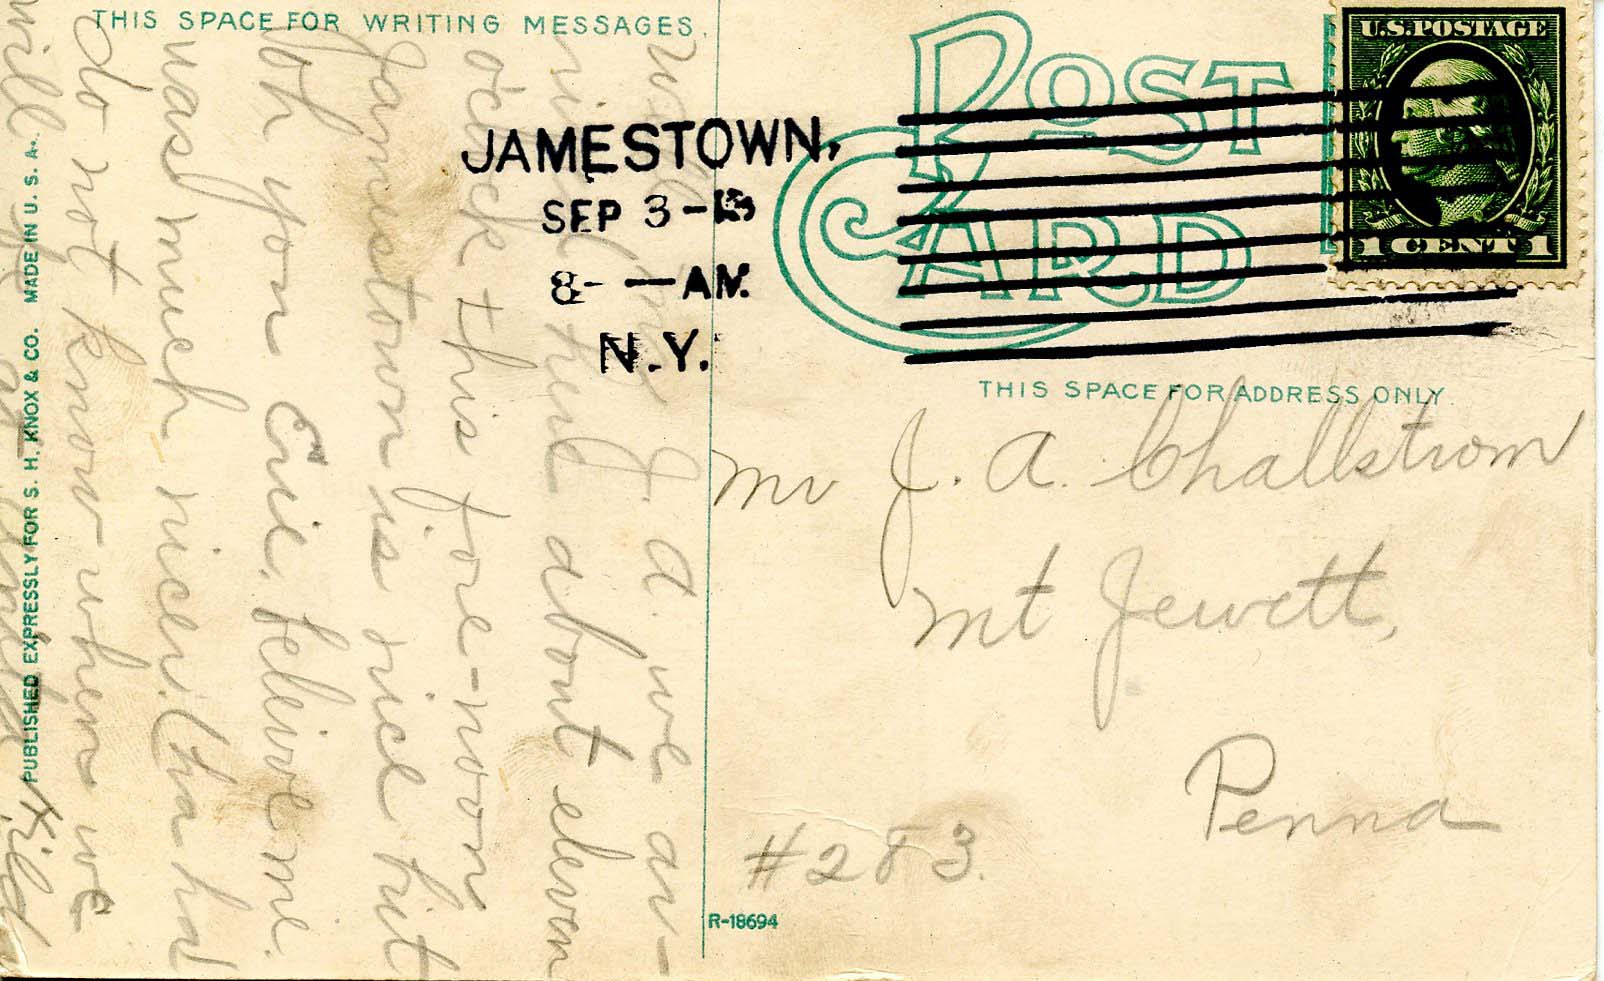 THIS SPACE FOR WRITING MESSAGES.
Well J. A. we ar-
rived here about eleven
o'clock this fore-noon
Jamestown is nice but
Oh you Erie. belive me.
was much nicer (ha ha)
do not know when we
will be at
Hild
PUBLISHED EXPRESSLY FOR S. H. KNOX & CO. MADE IN U. S. A.
POST
CARD
JAMESTOWN,
SEP 3 -
8- — AM.
N.Y.
U.S. POSTAGE
1 CENT 1
THIS SPACE FOR ADDRESS ONLY.
Mr J. A. Challstrom
Mt Jewett,
Penna
#283.
R-18694